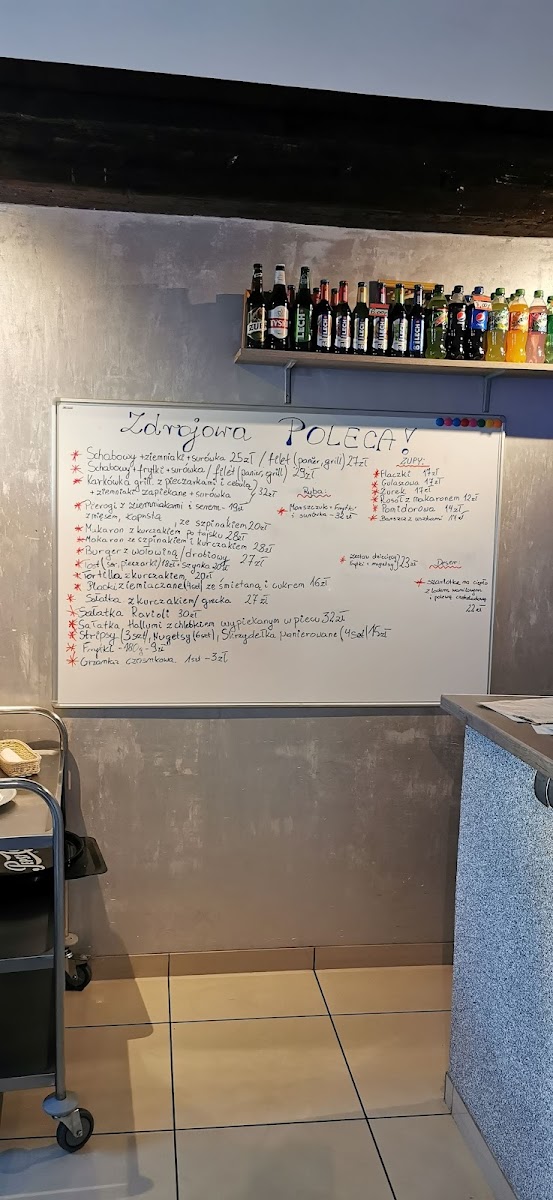 Zdrojowa POLECA!
* Schabowy + ziemniaki + surówka 25zł / filet (panier, grill) 27zł
* Schabowy + frytki + surówka / filet (panier, grill) 29zł
* Karkówka grill. z pieczarkami i cebulą
+ ziemniaki zapiekane + surówka / 32zł
* Pierogi z ziemniakami i serem - 19zł
z mięsem, kapustą, ze szpinakiem 20zł
* Makaron z kurczakiem po tajsku 28zł
* Makaron ze szpinakiem i kurczakiem 28zł
* Burger z wołowiną / drobiowy 27zł
* Tost (ser, pieczarki) 18zł + szynka
* Tortilla z kurczakiem 20zł
* Placki ziemniaczane (4szt) ze śmietaną i cukrem 16zł
* Sałatka z kurczakiem / grecka 27zł
* Sałatka Ravioli 30zł
* Sałatka Hallumi z chlebkiem wypiekanym w piecu 32zł
* Stripsy (3szt), Nugetsy (6szt), Skrzydełka panierowane (4szt) 15zł
* Frytki - 180g - 9zł
* Grzanka czosnkowa 1szt - 3zł
Ryba:
* Morszczuk + frytki
i surówka - 32zł
ZUPY:
* Flaczki 17zł
* Gulaszowa 17zł
* Żurek 17zł
* Rosół z makaronem 12zł
* Pomidorowa 14zł
* Barszcz z uszkami 14zł
* zestaw dziecięcy
frytki + nugetsy 23zł
Deser
* szarlotka na ciepło
z lodem waniliowym
i polewą czekoladową
22zł
ŻUB
TYSK
LECH
LECH
LECH
pepsi